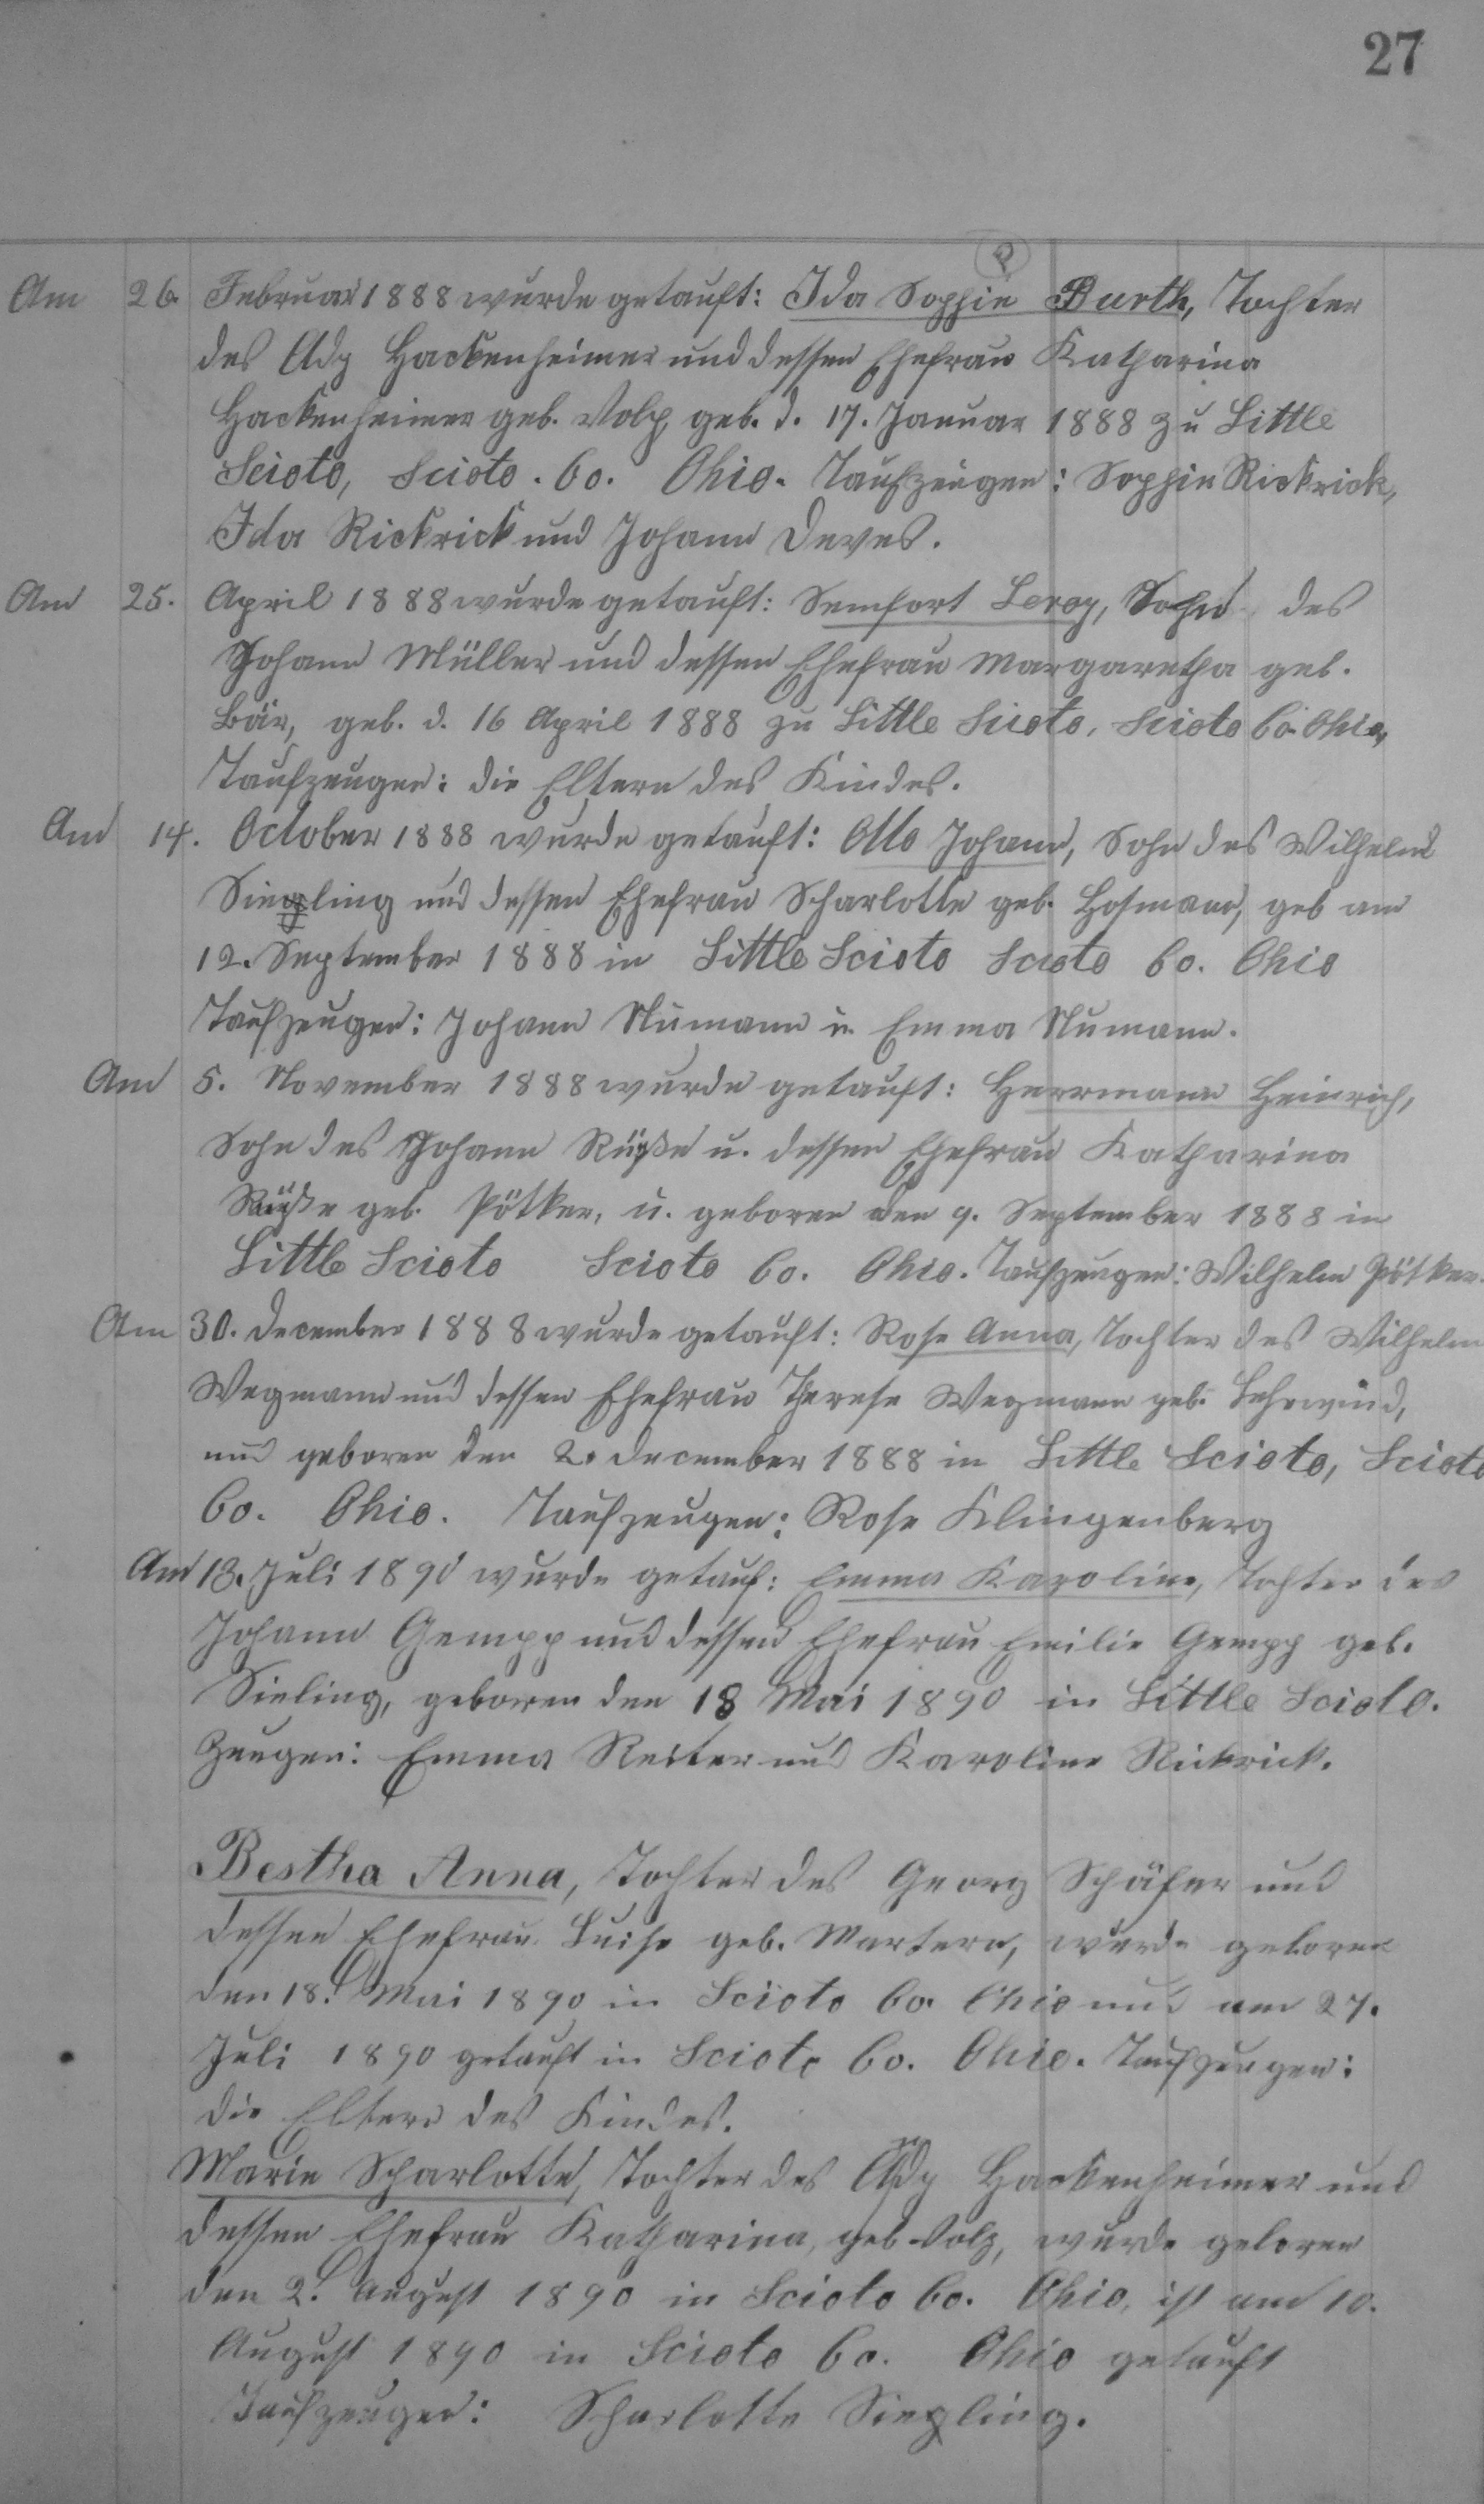 27
Am 26. Februar 1888 wurde getauft: Ida Sophie Burth, Tochter
des Adp Hackenheimer und dessen Ehefrau Katharina
Hackenheimer geb. Volz, geb. d. 17. Januar 1888 zu Little
Scioto, Scioto. Co. Ohio. Taufzeugen: Sophie Rickrick,
Ida Rickrick und Johann Deves.
Am 25. April 1888 wurde getauft: Semfort Leroy, Sohn des
Johann Müller und dessen Ehefrau Margaretha geb.
Bär, geb. d. 16 April 1888 zu Little Scioto, Scioto Co. Ohio,
Taufzeugen: die Eltern des Kindes.
Am 14. October 1888 wurde getauft: Otto Johann, Sohn des Wilhelm
Siegling und dessen Ehefrau Scharlotte geb. Hosmann, geb am
12. September 1888 in Little Scioto Scioto Co. Ohio
Taufzeugen: Johann Numann u. Emma Numann.
Am 5. November 1888 wurde getauft: Herrmann Heinrich,
Sohn des Johann Rüße u. dessen Ehefrau Katharina
Rüße geb. Pötker, u. geboren den 9. September 1888 in
Little Scioto Scioto Co. Ohio. Taufzeugen: Wilhelm Pötker.
Am 30. December 1888 wurde getauft: Rosa Anna, Tochter des Wilhelm
Wegmann und dessen Ehefrau Therese Wegmann geb. Lehrwind,
und geboren den 2. December 1888 in Little Scioto, Scioto
Co. Ohio. Taufzeugen: Rosa Klingenberg
Am 13. Juli 1890 wurde getauf: Emma Karoline, Tochter des
Johann Gempp und dessen Ehefrau Emilie Gempp geb.
Sieling, geboren den 18 Mai 1890 in Little Scioto.
Zeugen: Emma Reiter und Karoline Rickrick.
Bestha Anna, Tochter des Georg Schäfer und
dessen Ehefrau Luise geb. Martern, wurde geboren
den 18. Mai 1890 in Scioto Co. Ohio und am 27.
Juli 1890 getauft in Scioto Co. Ohio. Taufzeugen:
die Eltern des Kindes.
Marie Scharlotte, Tochter des Adp Hackenheimer und
dessen Ehefrau Katharina, geb Volz, wurde geboren
den 2. August 1890 in Scioto Co. Ohio, ist am 10.
August 1890 in Scioto Co. Ohio getauft
Taufzeugen: Scharlotte Siegling.